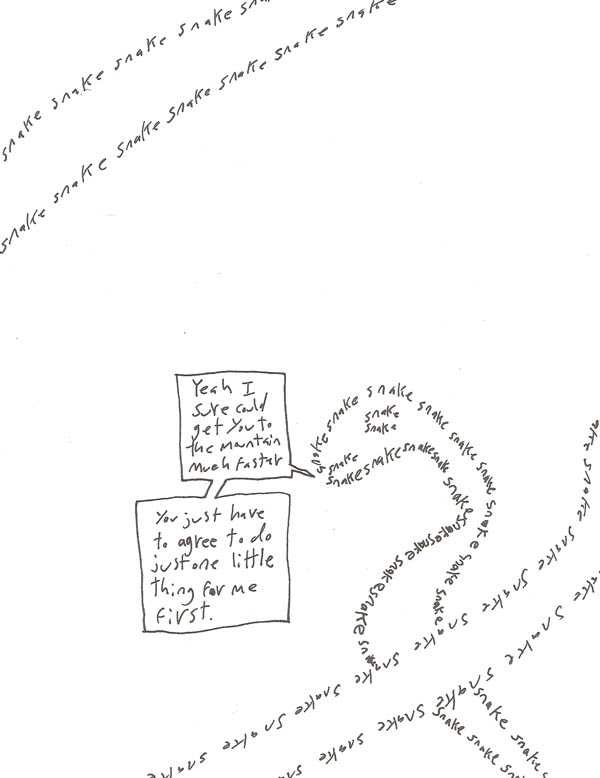 snake snake snake snake snake
snake snake snake snake snake snake snake
Yeah I
sure could
get you to
the mountain
much faster
You just have
to agree to do
just one little
thing for me
first.
snake snake snake snake snake snake snake snake snake
snake
snake
snake
snake snake snake snake snake snake snake snake snake
snake snake snake snake snake snake snake snake
snake snake snake snake snake snake
snake snake
snake snake